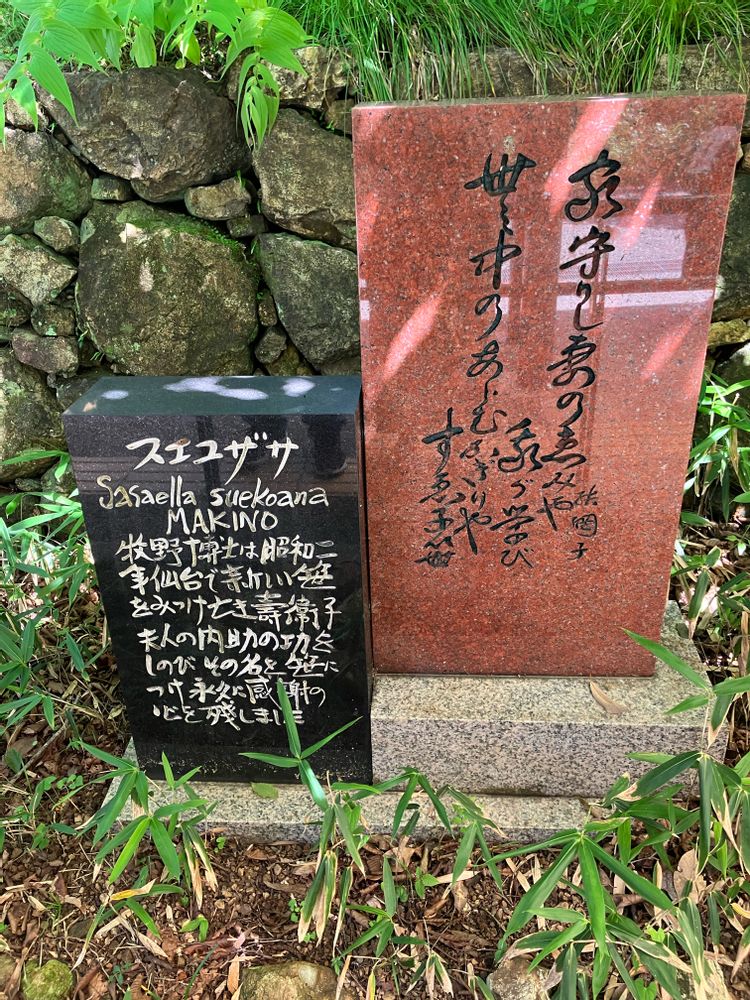 家守りし妻の恵みや
我が学び
世の中のあらむかぎりや
すゑ子笹
スエコザサ
Sasaella suekoana
MAKINO
牧野博士は昭和二
年仙台で新しい笹
をみつけ亡き壽衛子
夫人の内助の功を
しのびその名を笹に
つけ永久に感謝の
心を残しました